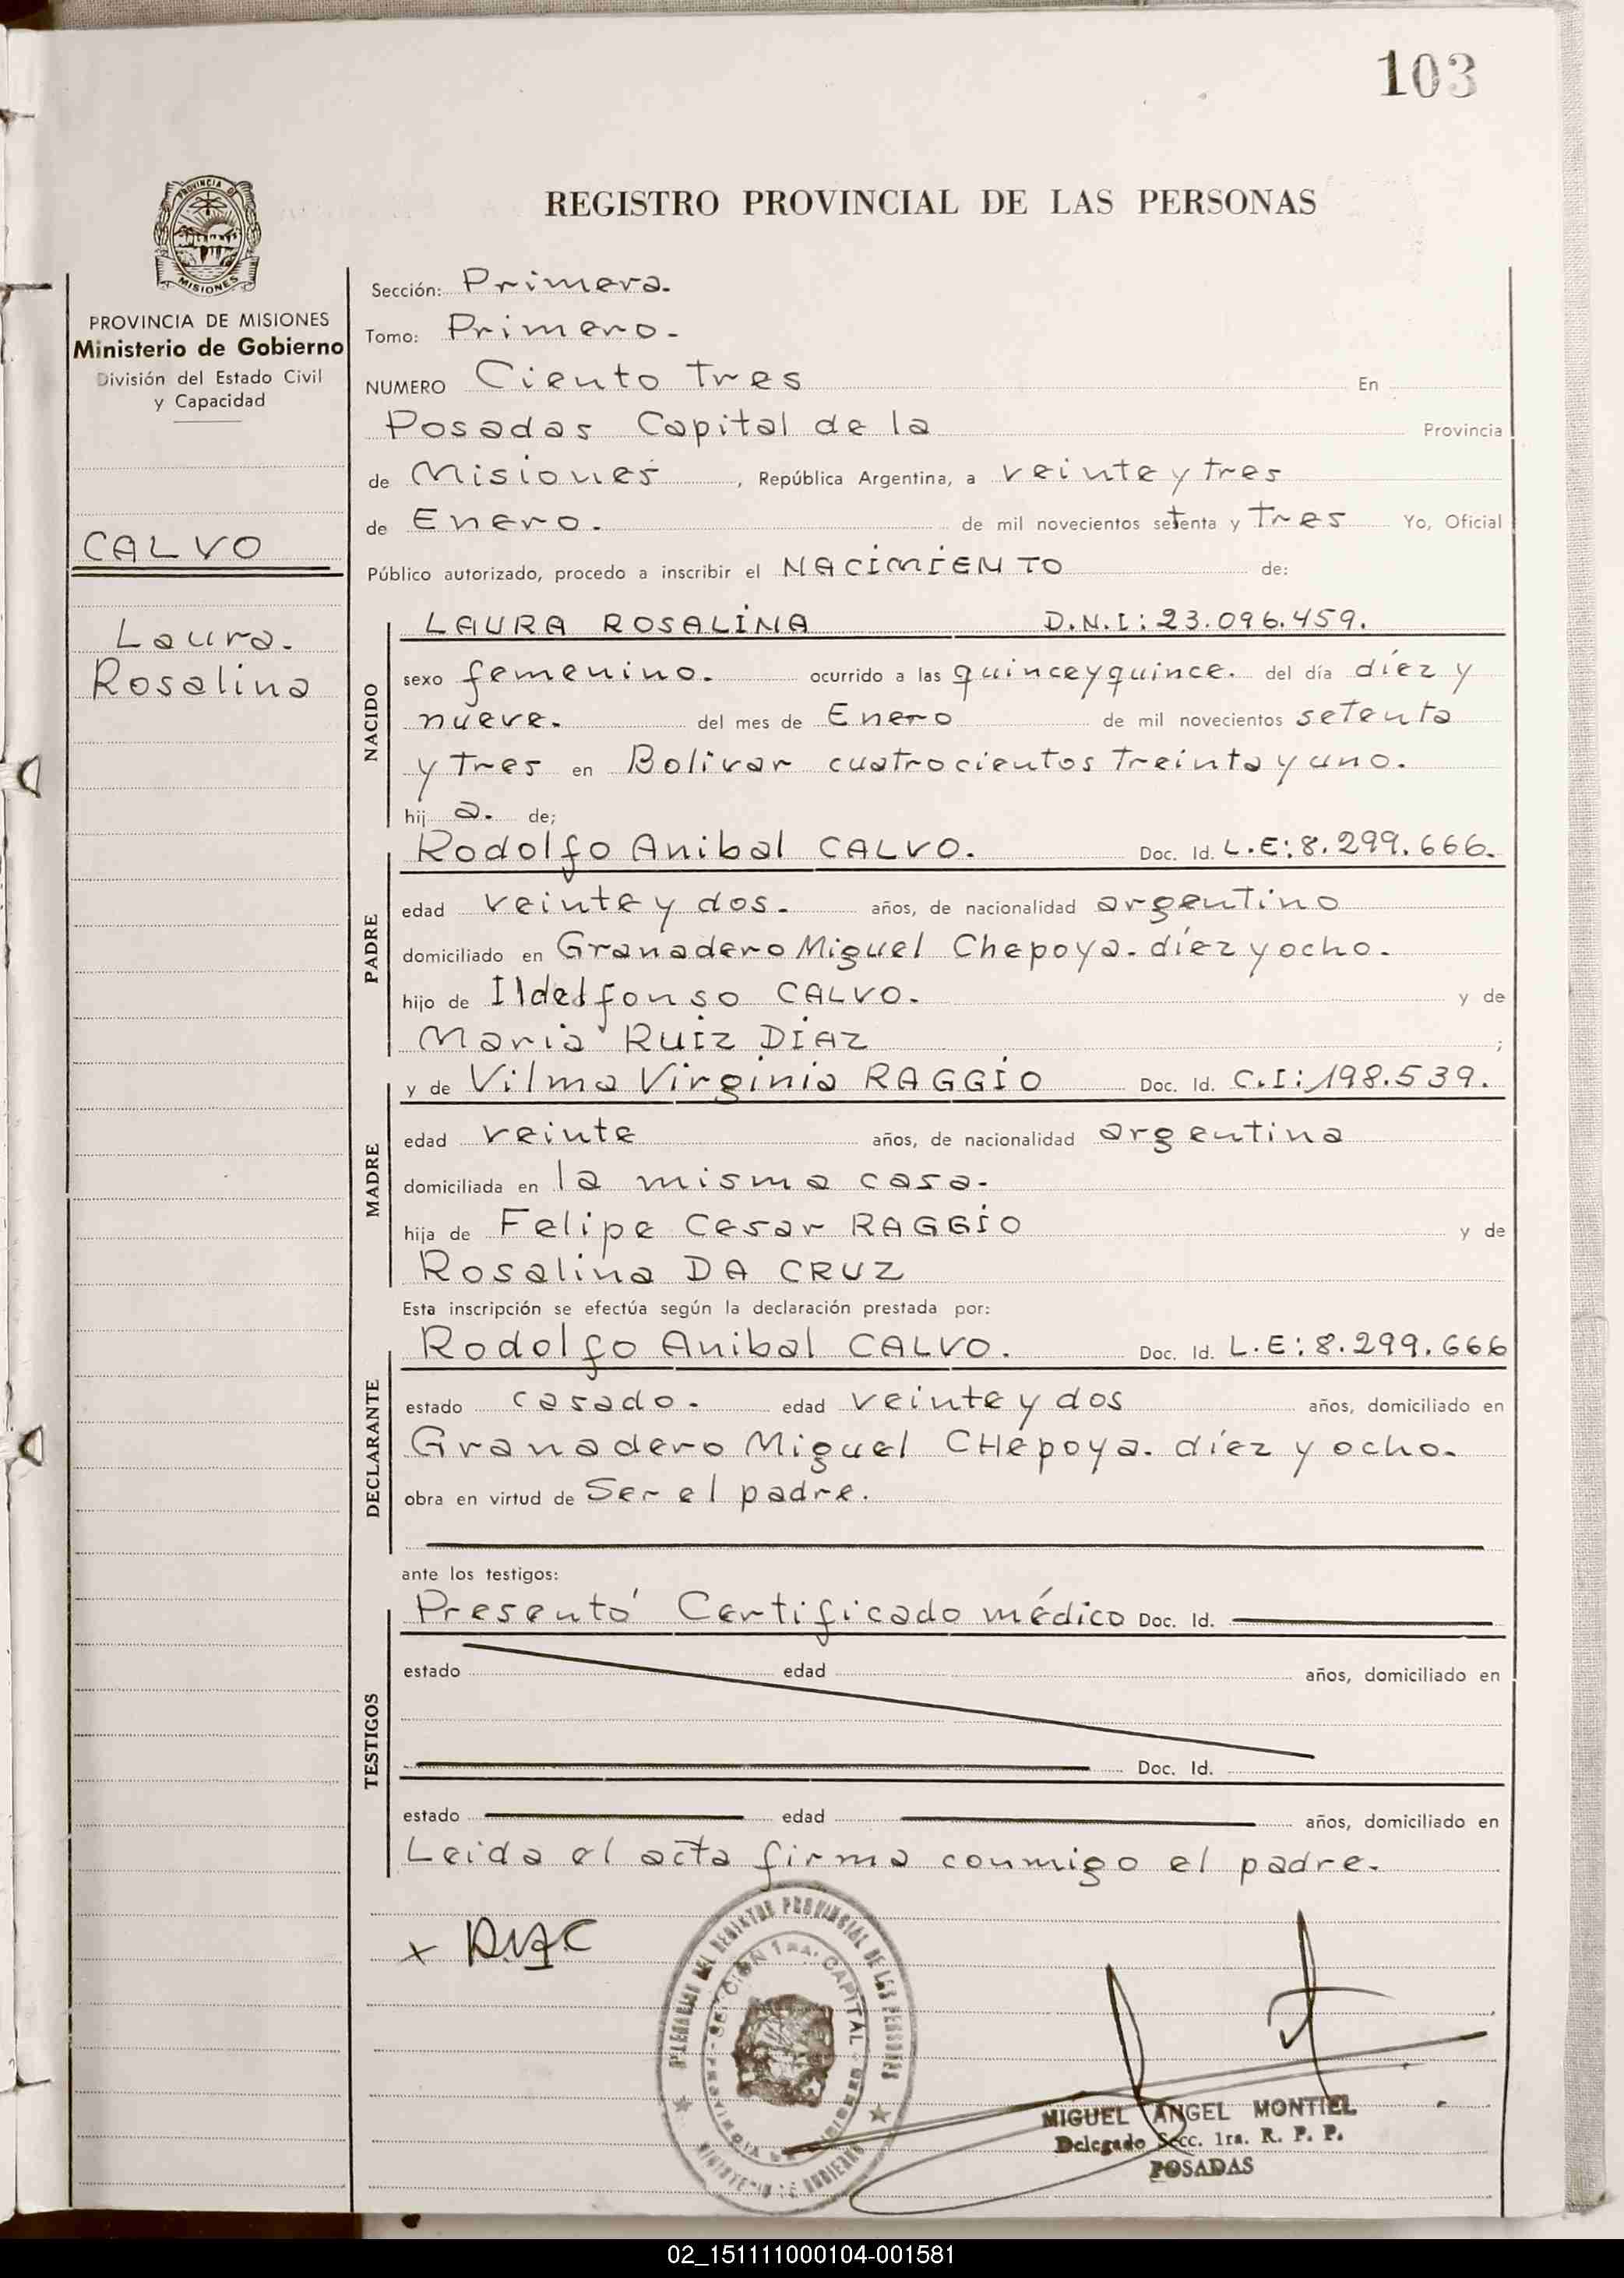 103
PROVINCIA DE
MISIONES
REGISTRO PROVINCIAL DE LAS PERSONAS
PROVINCIA DE MISIONES
Ministerio de Gobierno
División del Estado Civil
y Capacidad
CALVO
Laura.
Rosalina
Sección: Primera.
Tomo: Primero.-
NUMERO Ciento tres En
Posadas Capital de la Provincia
de Misiones, República Argentina, a veinte y tres
de Enero. de mil novecientos setenta y Tres Yo, Oficial
Público autorizado, procedo a inscribir el NACIMIENTO de:
NACIDO
LAURA ROSALINA D.N.I: 23.096.459.
sexo femenino. ocurrido a las quince y quince. del día díez y
nueve. del mes de Enero de mil novecientos setenta
y Tres en Bolivar cuatrocientos Treinta y uno.
hij a. de;
PADRE
Rodolfo Anibal CALVO. Doc. Id. L.E: 8.299.666.
edad veinte y dos. años, de nacionalidad argentino
domiciliado en Granadero Miguel Chepoya. díez y ocho.
hijo de Ildelfonso CALVO. y de
Maria RUIZ DIAZ ;
MADRE
y de Vilma Virginia RAGGIO Doc. Id. C.I: 198.539.
edad veinte años, de nacionalidad argentina
domiciliada en la misma casa.
hija de Felipe Cesar RAGGIO y de
Rosalina DA CRUZ
Esta inscripción se efectúa según la declaración prestada por:
DECLARANTE
Rodolfo Anibal CALVO. Doc. Id. L.E: 8.299.666
estado casado. edad veinte y dos años, domiciliado en
Granadero Miguel CHepoya. díez y ocho.
obra en virtud de Ser el padre.
ante los testigos:
TESTIGOS
Presentó Certificado médico Doc. Id.
estado edad años, domiciliado en
Doc. Id.
estado edad años, domiciliado en
Leida el acta firma conmigo el padre.
x R.A.C
DEL REGISTRO PROVINCIAL DE LAS PERSONAS
SECCION 1ra. CAPITAL
MINISTERIO DE GOBIERNO
MIGUEL ANGEL MONTIEL
Delegado Secc. 1ra. R. P. P.
POSADAS
02_151111000104-001581